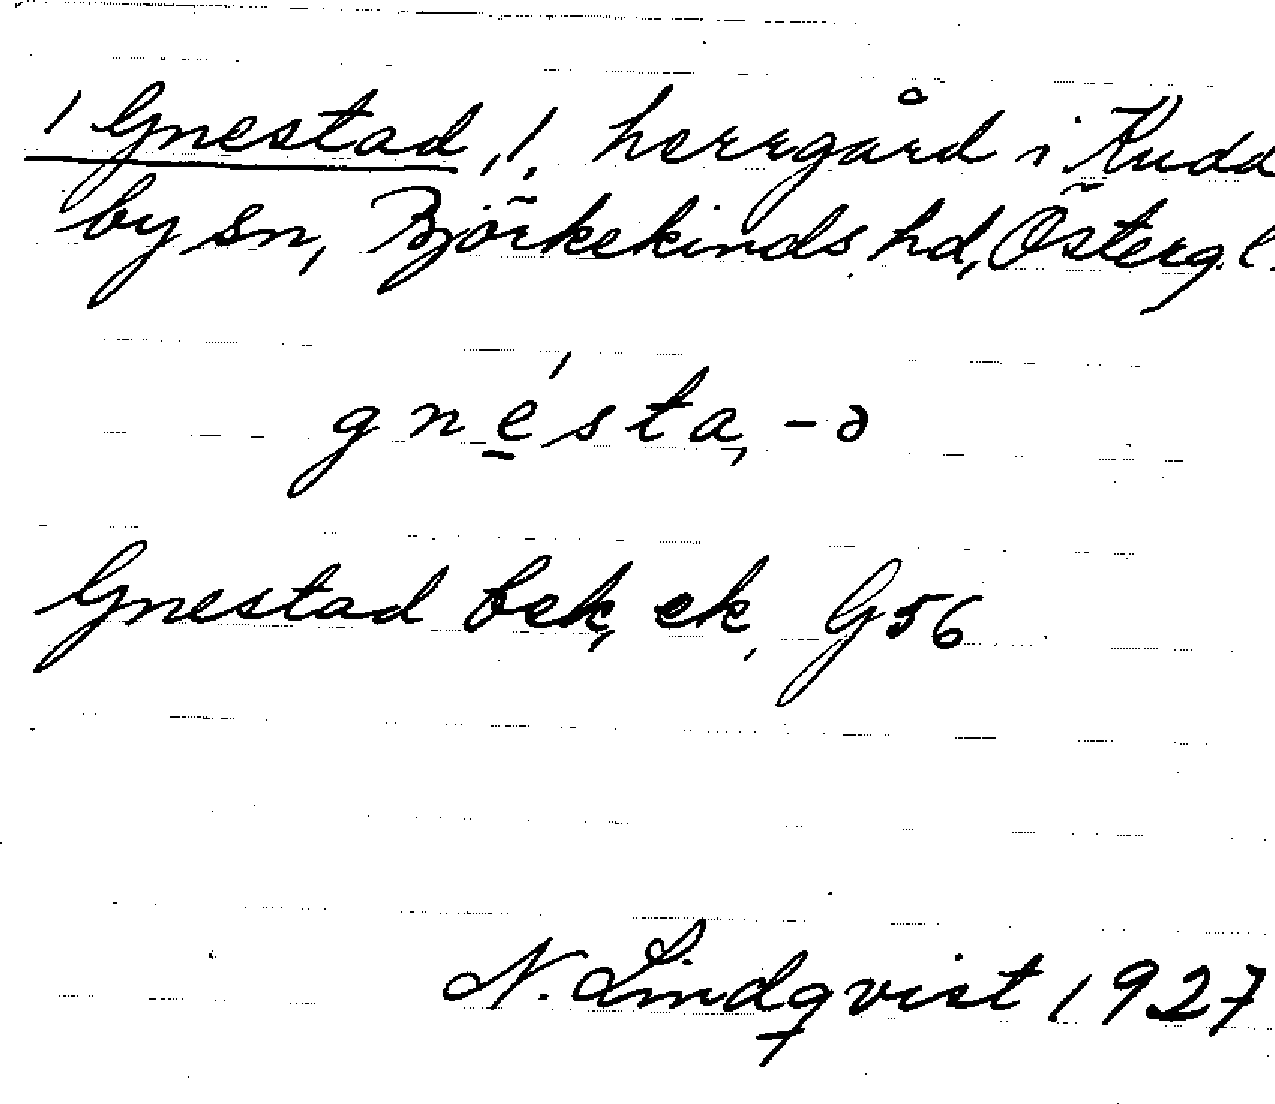 1 Gnestad, 1, herrgård i Kudd
by sn, Björkekinds hd, Österg. l.
gnésta, -ə
Gnestad bek, ek, G56
N. Lindqvist 1927